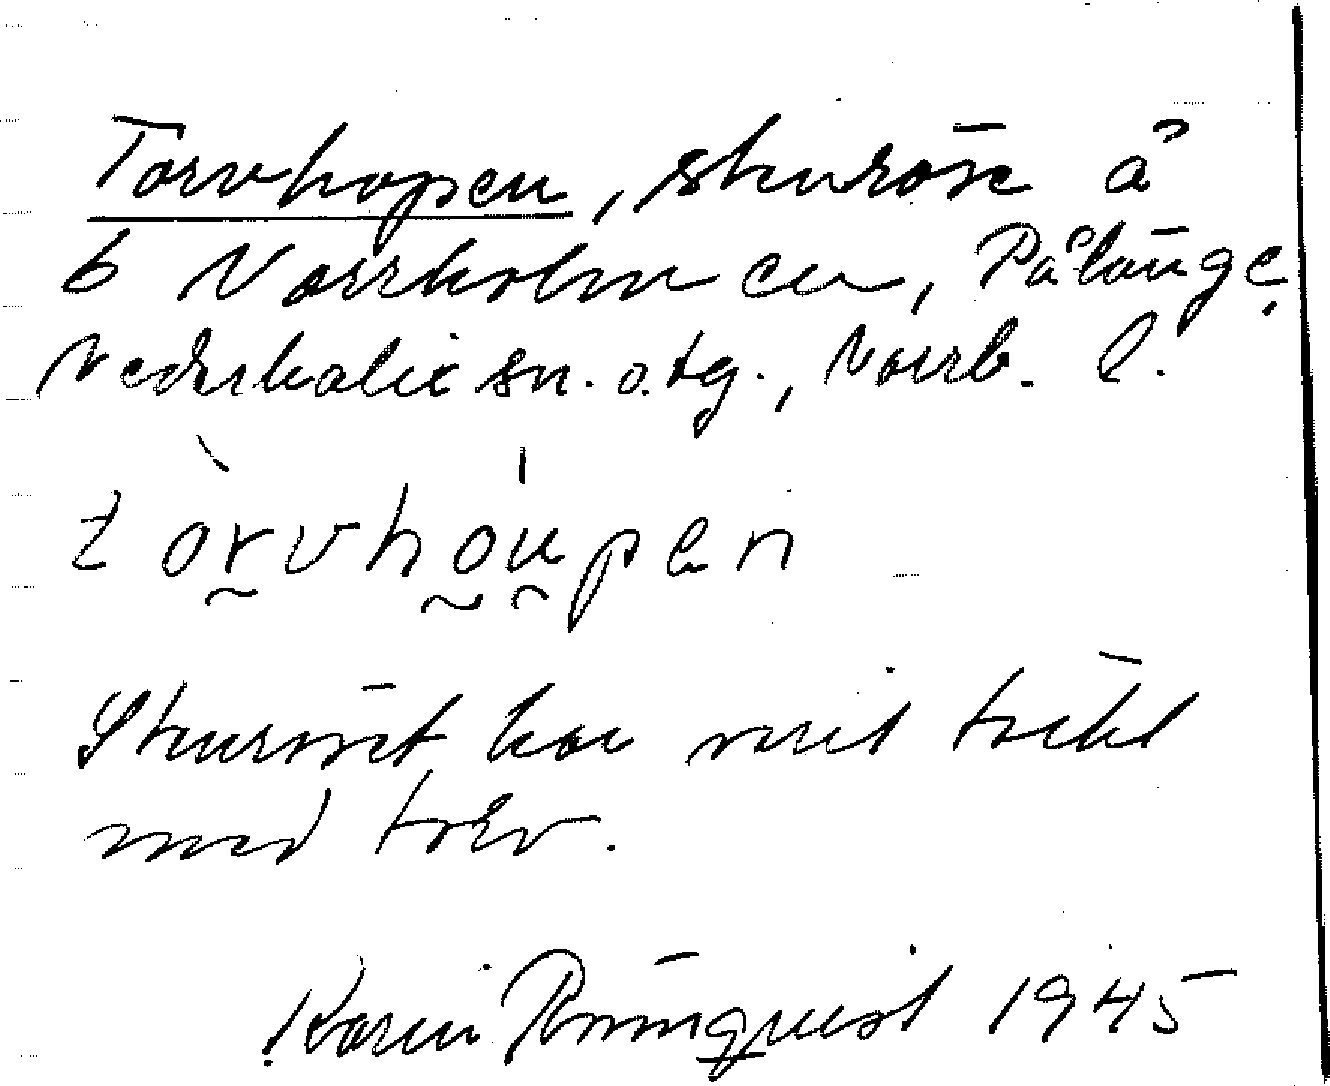 Torvhopen, stenröse å
ö Norrholmen, Pålänge,
Nederkalix sn. o. tg., Norrb. l.
tòrvhóu̯pen
Stenröset har varit täckt
med torv.
Karin Rönnquist 1945